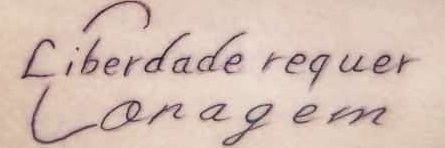 Liberdade requer
Coragem